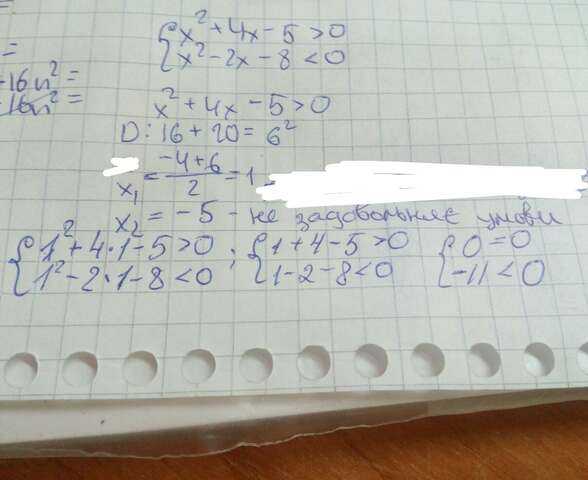 =
-16n² =
-16n² =
{ x² + 4x - 5 > 0
{ x² - 2x - 8 < 0
x² + 4x - 5 > 0
D: 16 + 20 = 6²
x₁ = (-4+6)/2 = 1
x₂ = -5 - не задовольняє умови
{ 1² + 4·1 - 5 > 0 ; { 1 + 4 - 5 > 0 { 0 = 0
{ 1² - 2·1 - 8 < 0 { 1 - 2 - 8 < 0 { -11 < 0